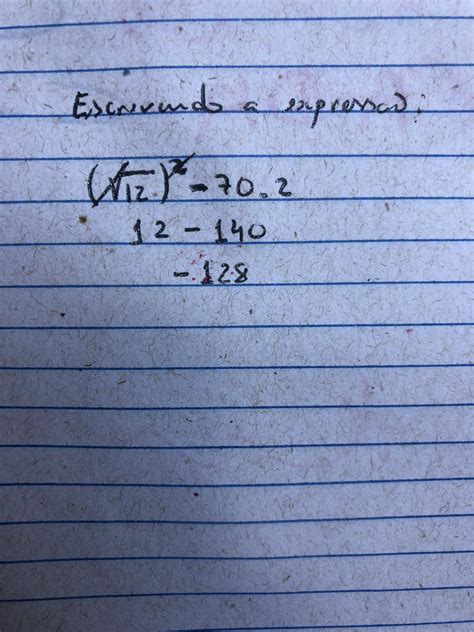 Escrevendo a expressão:
(√12)² - 70.2
12 - 140
- 128